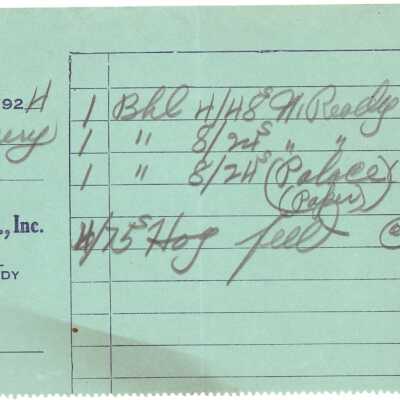 1924
1 Bbl 4/48s N. Ready
1 " 8/24s " "
1 " 8/24s (Palace)
(Paper)
., Inc. 4/75s Hog feed
DY